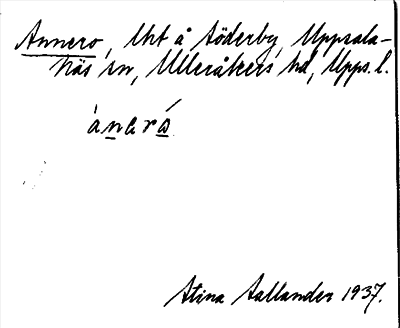 Annero, lht å Söderby, Uppsala-
Näs sn, Ulleråkers hd, Upps. l.
ànerò
Stina Sallander 1937.